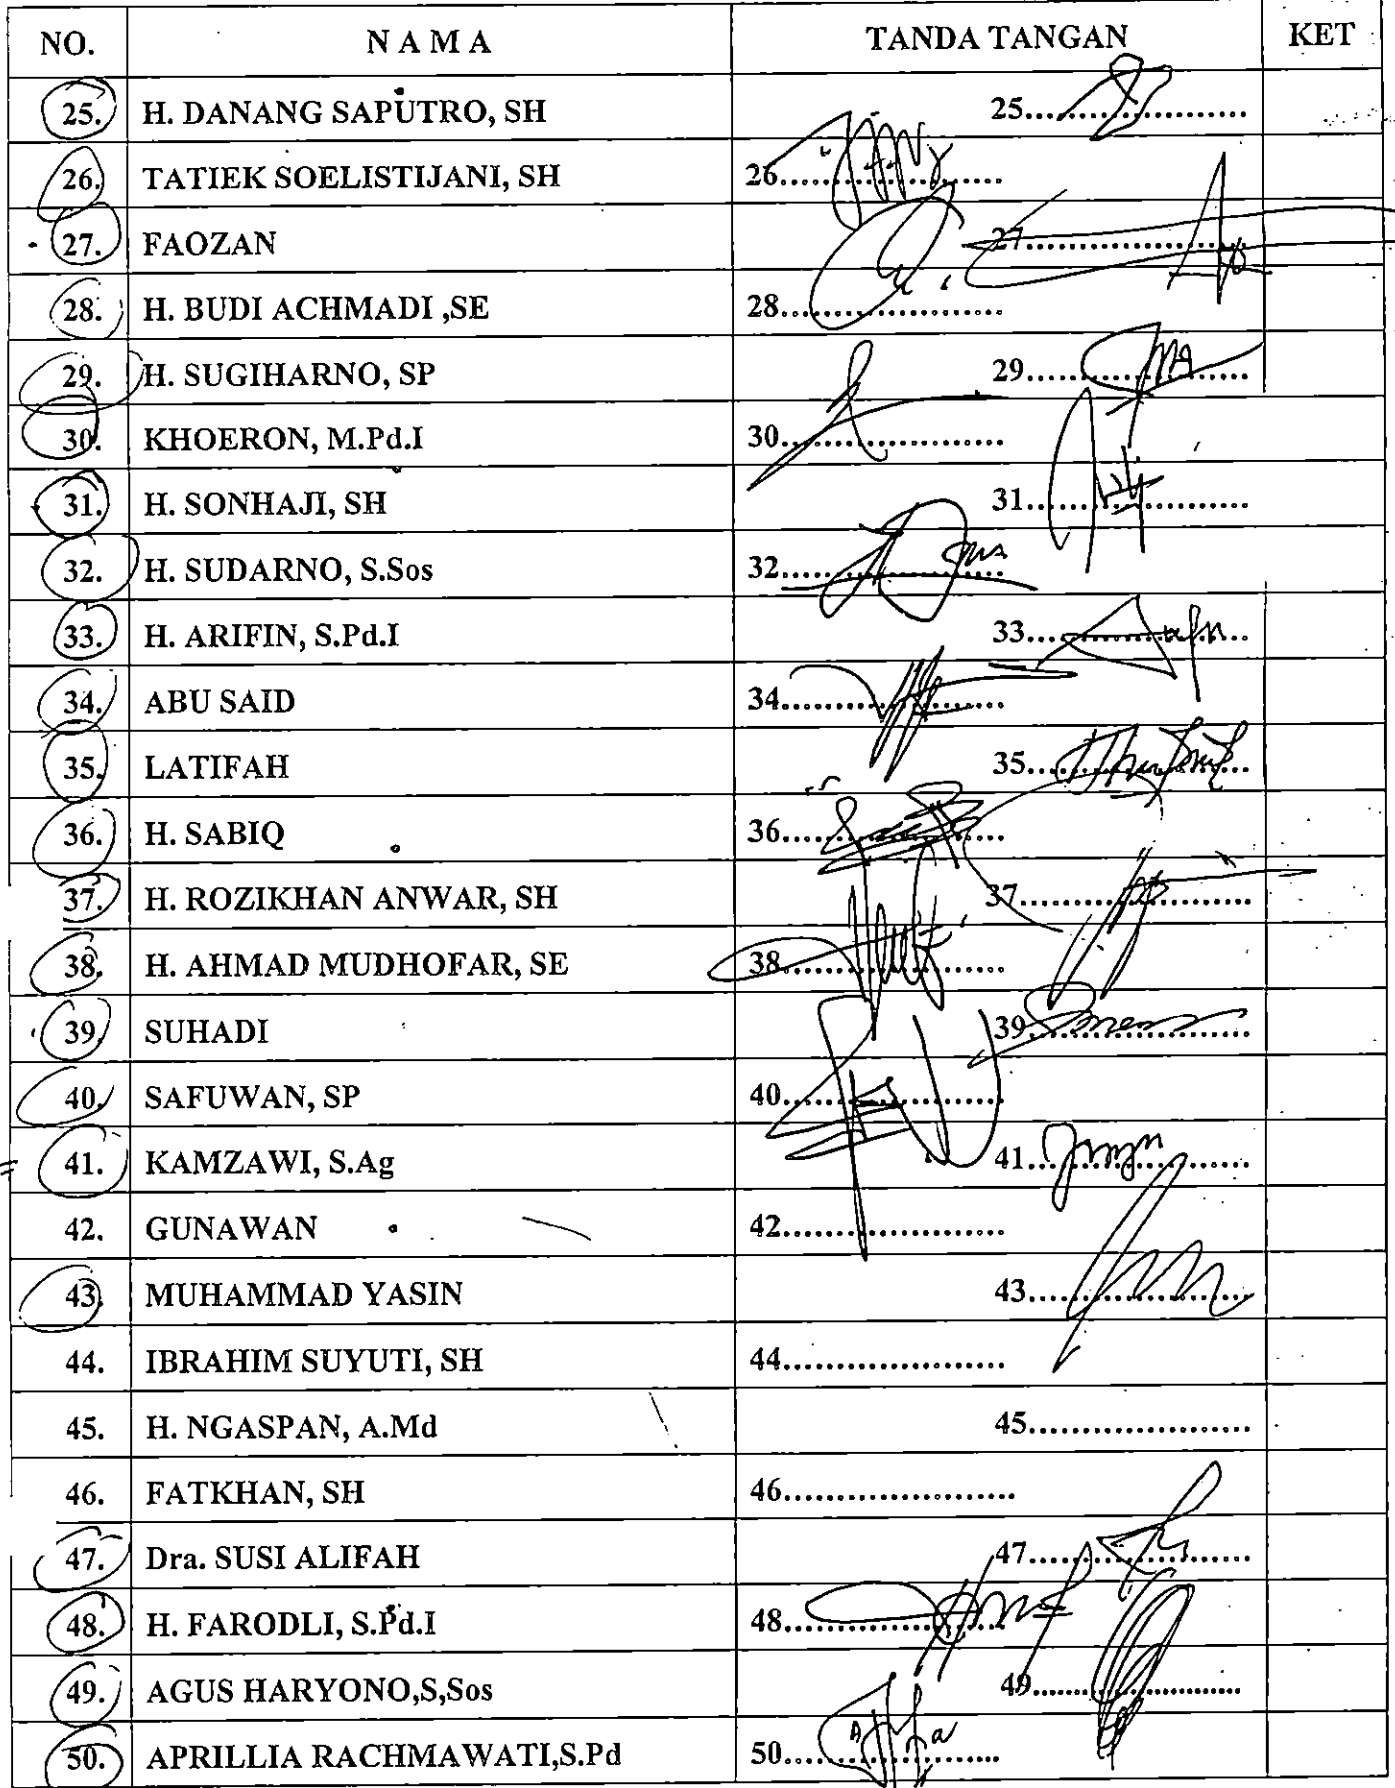 NO. N A M A TANDA TANGAN KET
25. H. DANANG SAPUTRO, SH 25....................
26. TATIEK SOELISTIJANI, SH 26....................
27. FAOZAN 27....................
28. H. BUDI ACHMADI ,SE 28....................
29. H. SUGIHARNO, SP 29....................
30. KHOERON, M.Pd.I 30....................
31. H. SONHAJI, SH 31....................
32. H. SUDARNO, S.Sos 32....................
33. H. ARIFIN, S.Pd.I 33....................
34. ABU SAID 34....................
35. LATIFAH 35....................
36. H. SABIQ 36....................
37. H. ROZIKHAN ANWAR, SH 37....................
38. H. AHMAD MUDHOFAR, SE 38....................
39. SUHADI 39....................
40. SAFUWAN, SP 40....................
41. KAMZAWI, S.Ag 41....................
42. GUNAWAN 42....................
43. MUHAMMAD YASIN 43....................
44. IBRAHIM SUYUTI, SH 44....................
45. H. NGASPAN, A.Md 45....................
46. FATKHAN, SH 46.....................
47. Dra. SUSI ALIFAH 47....................
48. H. FARODLI, S.Pd.I 48....................
49. AGUS HARYONO,S,Sos 49...................
50. APRILLIA RACHMAWATI,S.Pd 50....................